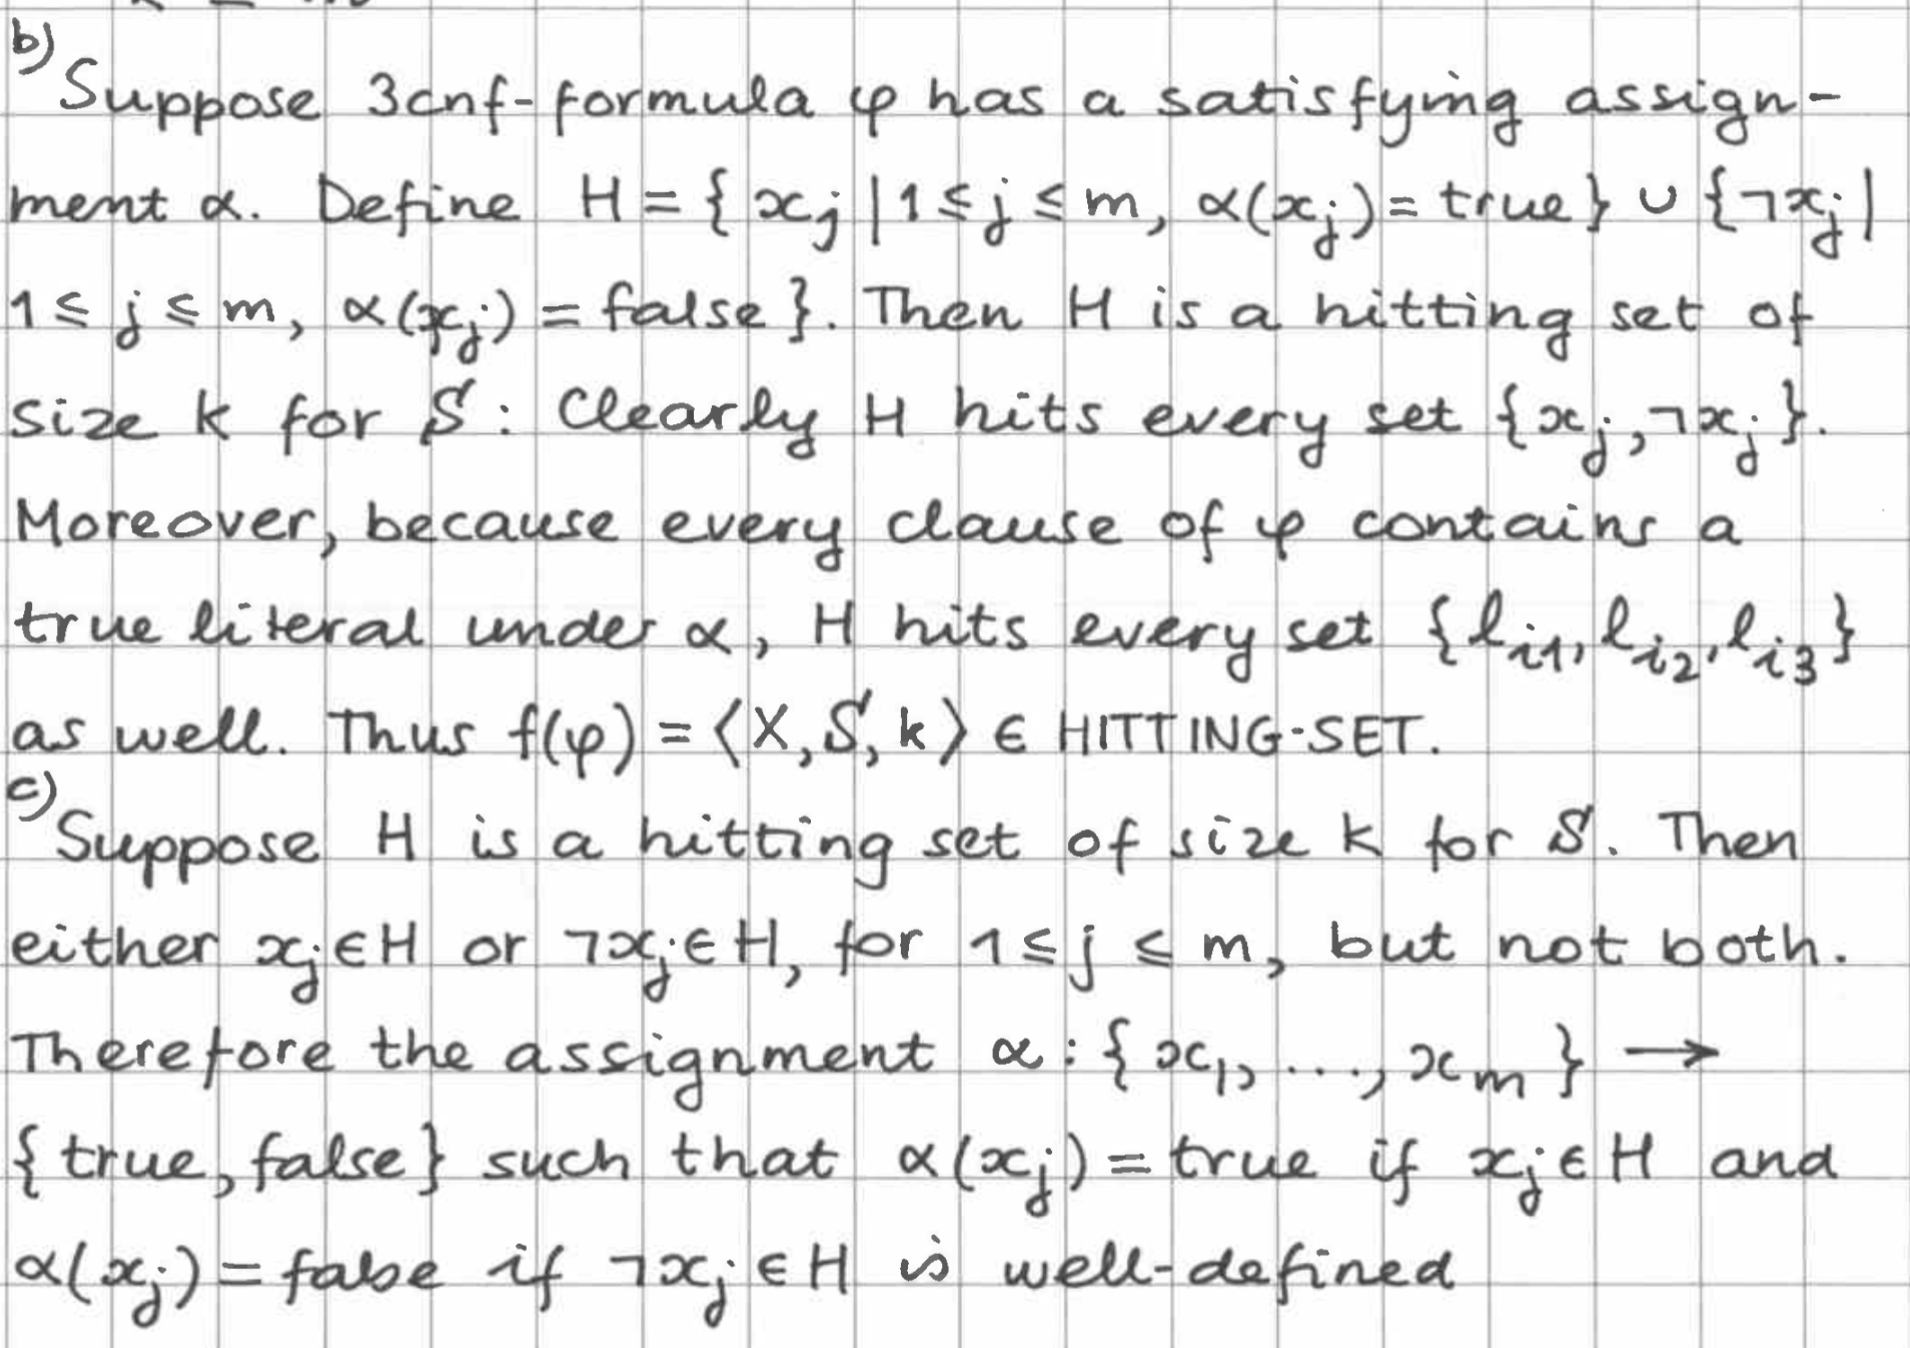 b)
Suppose 3cnf-formula φ has a satisfying assign-
ment α. Define H = { xj | 1 ≤ j ≤ m, α(xj) = true } ∪ { ¬xj |
1 ≤ j ≤ m, α(xj) = false }. Then H is a hitting set of
size k for S: Clearly H hits every set { xj, ¬xj }.
Moreover, because every clause of φ contains a
true literal under α, H hits every set { li1, li2, li3 }
as well. Thus f(φ) = ⟨X, S, k⟩ ∈ HITTING-SET.
c)
Suppose H is a hitting set of size k for S. Then
either xj ∈ H or ¬xj ∈ H, for 1 ≤ j ≤ m, but not both.
Therefore the assignment α: { x1, ..., xm } →
{ true, false } such that α(xj) = true if xj ∈ H and
α(xj) = false if ¬xj ∈ H is well-defined